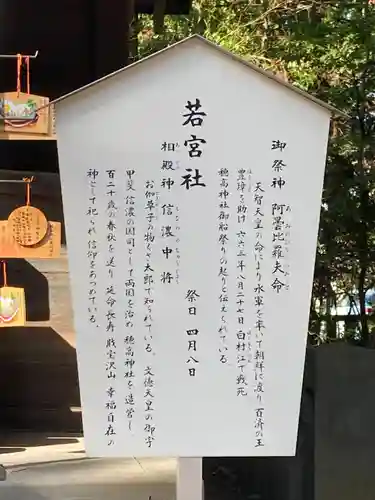 若宮社
御祭神 阿曇比羅夫命
天智天皇の命により水軍を率いて朝鮮に渡り 百済の王
豊璋を助け 六六三年八月二十七日 白村江で戦死
穂高神社御船祭りの起りと伝えられている。
祭日 四月八日
相殿神 信濃中将
お伽草子の物ぐさ太郎で知られている。 文徳天皇の御宇
甲斐 信濃の国司として両国を治め 穂高神社を造営し、
百二十歳の春秋を送り 延命長寿 賎宝沢山 幸福自在の
神として祀られ信仰をあつめている。